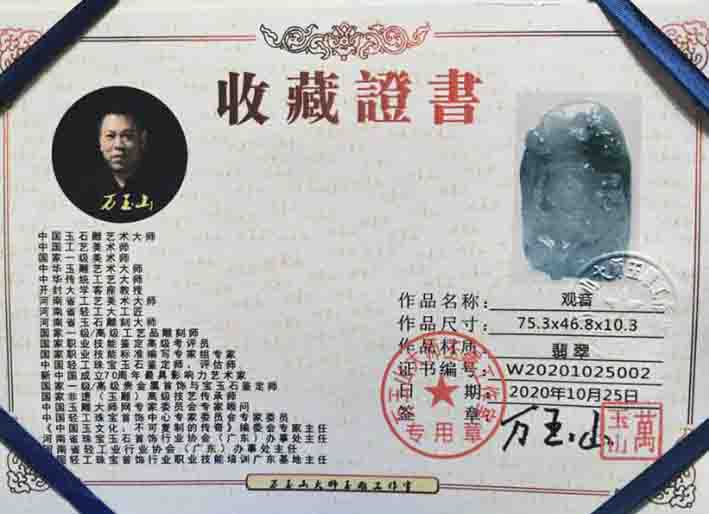 收藏證書
万玉山
中国玉石雕艺术大师
中国工艺美术师
国家一级美术师
中华玉雕艺术大师
中华传统工艺大师
开封大学客座教授
河南省工艺美术大师
河南省轻工大工匠
河南省玉石雕刻大师
国家一级/高级工艺品雕刻师
国家职业技能鉴定高级考评员
国家职业技能标准编写专家组专家
中国轻工珠宝玉石鉴定师，评估师
新中国成立70周年最具影响力艺术家
国家一级/高级贵金属首饰与宝玉石鉴定师
国家非遗（玉雕）高级技艺传承师
中国玉雕大师网专家委员会专家顾问
中国轻工珠宝首饰中心专家委员会专家委员
《中国玉文化·不可复制的传奇》编委会专家主任
河南省珠宝玉石首饰行业协会（广东）办事处主任
河南省轻工业行业协会（广东）办事处主任
国轻工珠宝首饰行业职业技能培训广东基地主任
作品名称：观音
作品尺寸：75.3x46.8x10.3
作品材质：翡翠
证书编号：W20201025002
日期：2020年10月25日
签章：万玉山
萬玉山
专用章
万玉山大师玉雕工作室